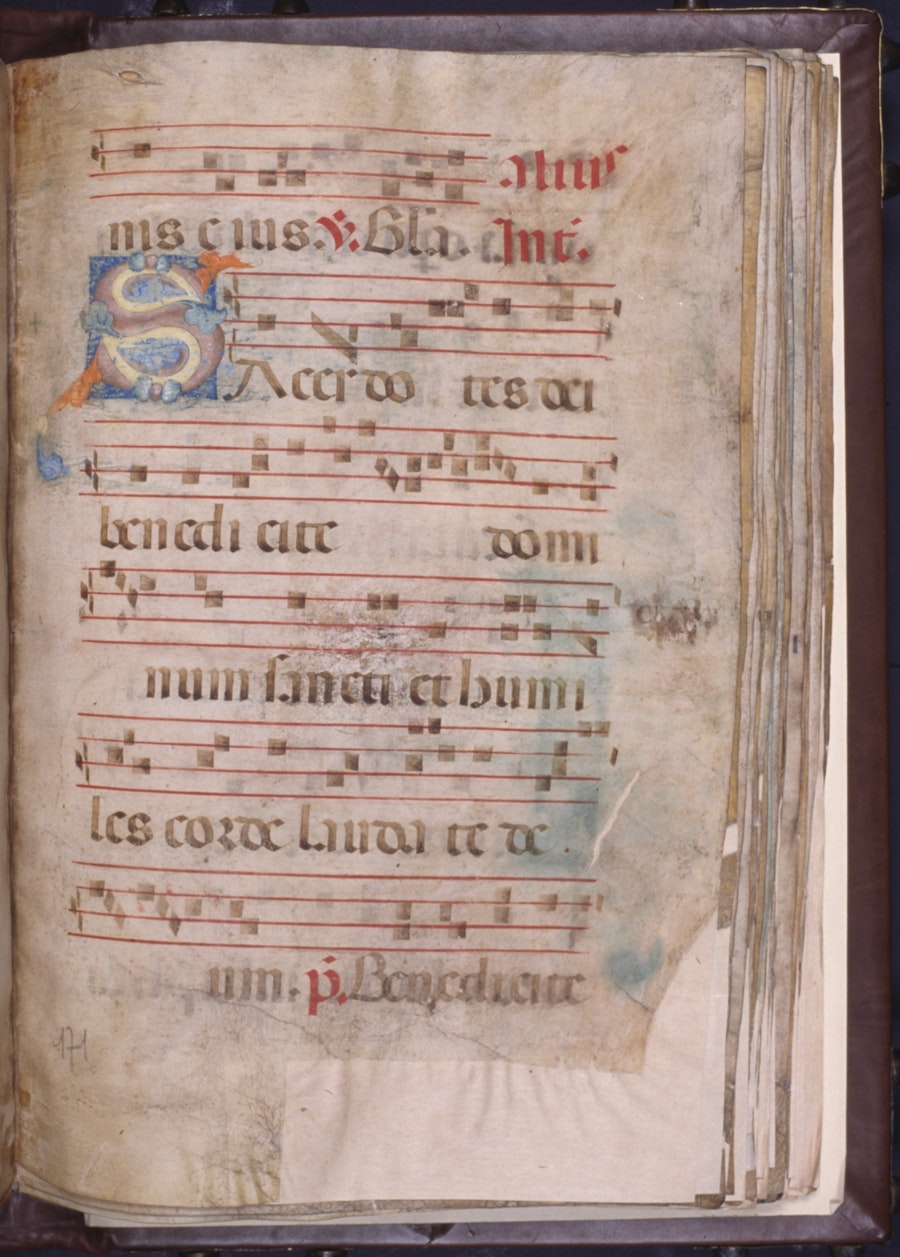 Alius
nis eius. ℣. Gl'a. Int.
SAcerdo tes dei
benedi cite domi
num sancti et humi
les corde lauda te de
um. p̄. Benedicite
171